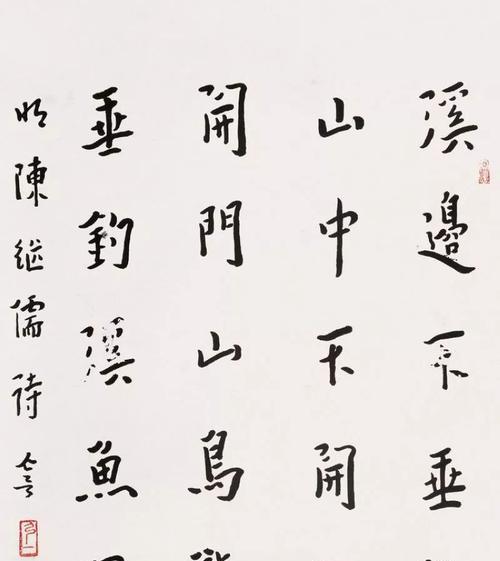 溪邊不垂
山中不開
開門山鳥
垂釣溪魚
明陳继儒詩